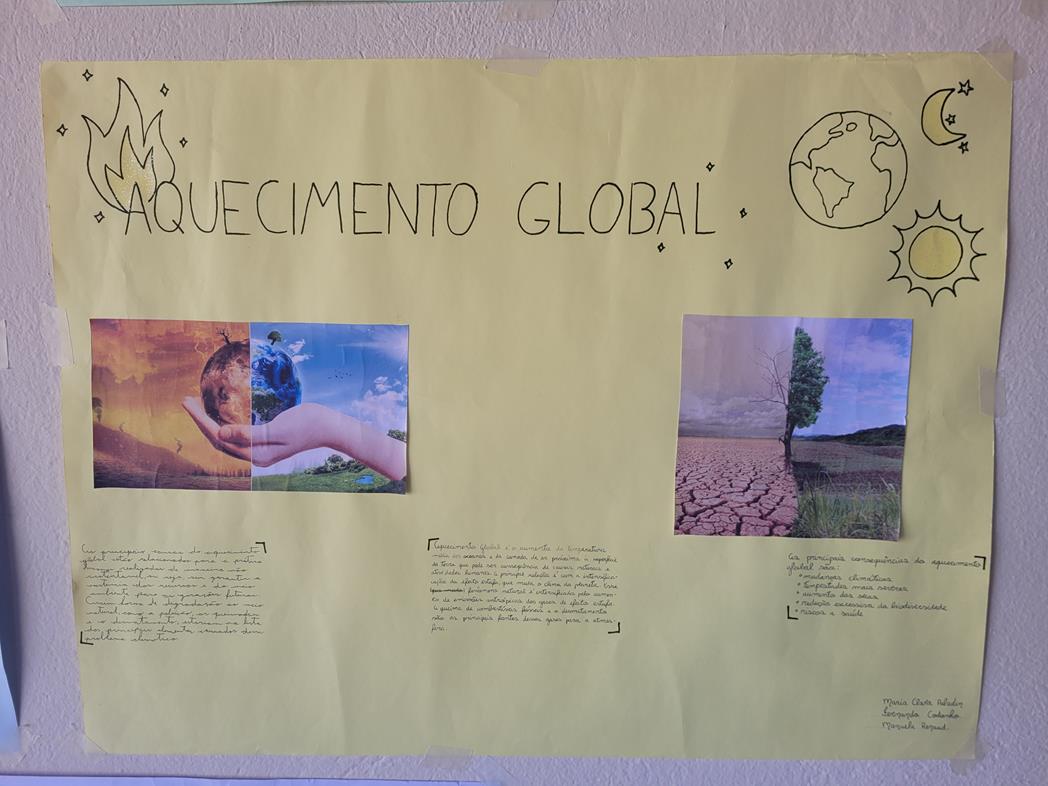 AQUECIMENTO GLOBAL
As principais causas do aquecimento
global estão relacionadas para a
realizadas de maneira não
sustentável, ou seja, sem garantir a
dos recursos e do meio
ambiente para as gerações futuras.
formas de degradação ao meio
natural como a poluição, as queimadas
e o desmatamento, estariam na lista
dos principais elementos causados desse
problema climático.
Aquecimento Global é o aumento da temperatura
média dos oceanos e da camada de ar próxima à superfície
da Terra que pode ser consequência de causas naturais e
atividades humanas. A principal relação é com a intensifica-
ção do efeito estufa, que muda o clima da planeta. Esse
fenômeno natural é intensificado pelo aumen-
to de emissões antrópicas dos gases de efeito estufa.
A queima de combustíveis fósseis e o desmatamento
são as principais fontes desses gases para a atmos-
fera.
As principais consequências do aquecimento
global são:
• mudanças climáticas
• tempestades mais severas
• aumento dos seus
• redução excessiva da biodiversidade
• riscos a saúde
Maria Clara
Fernanda
Manuela